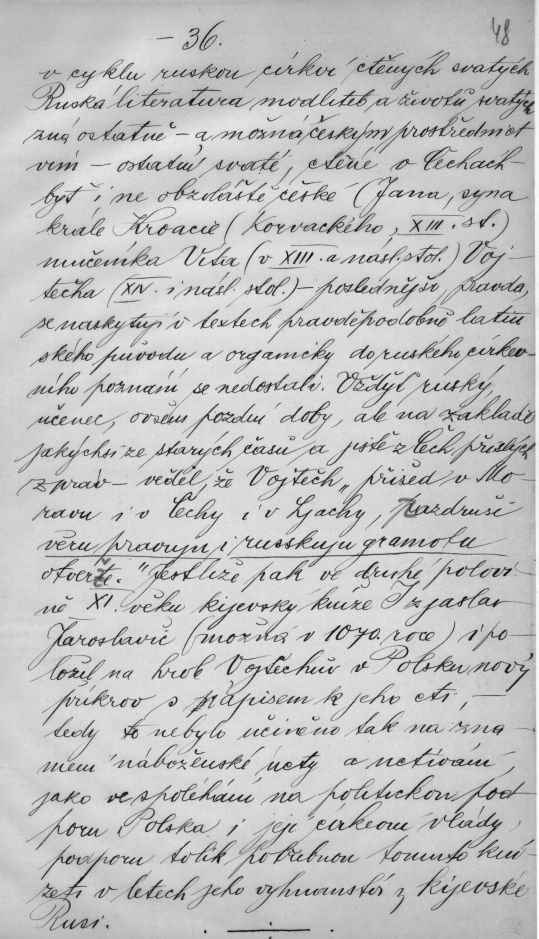 – 36.
48
v cyklu ruskou církví ctěných svatých
Ruská literatura modliteb a životů svatých
zná ostatně – a možná českým prostřednict
vím – ostatní svaté, ctěné v Čechách
byť i ne obzvláště české (Jana, syna
krále Kroacie (Korvackého, XIII. st.)
mučeníka Víta (v XIII. a násl. stol.) Voj-
těcha (XIV. i násl. stol.) – poslednější, pravda,
se naskytují v textech pravděpodobně latin
ského původu a organicky do ruského církev-
ního poznání se nedostali. Vždyť ruský
učenec, ovšem pozdní doby, ale na základě
jakýchsi ze starých časů a ještě z Čech přišlých
zpráv – věděl, že Vojtěch „prišed v Mo-
ravu i v Čechy i v Ljachy, razdruši
věru pravuju i russkuju gramotu
otverže." Jestliže pak ve druhé polovi
ně XI. věku kijevský kníže Izjaslav
Jaroslavič (možná v 1070. roce) i po-
ložil na hrob Vojtěchův v Polsku nový
příkrov s nápisem k jeho cti, –
tedy to nebylo učiněno tak na zna-
mení náboženské úcty a uctívání,
jako ve spoléhání na politickou pod
poru Polska i její církevní vlády,
podporu tolik potřebnou tomuto kní-
žeti v letech jeho vyhnanství z kijevské
Rusi.